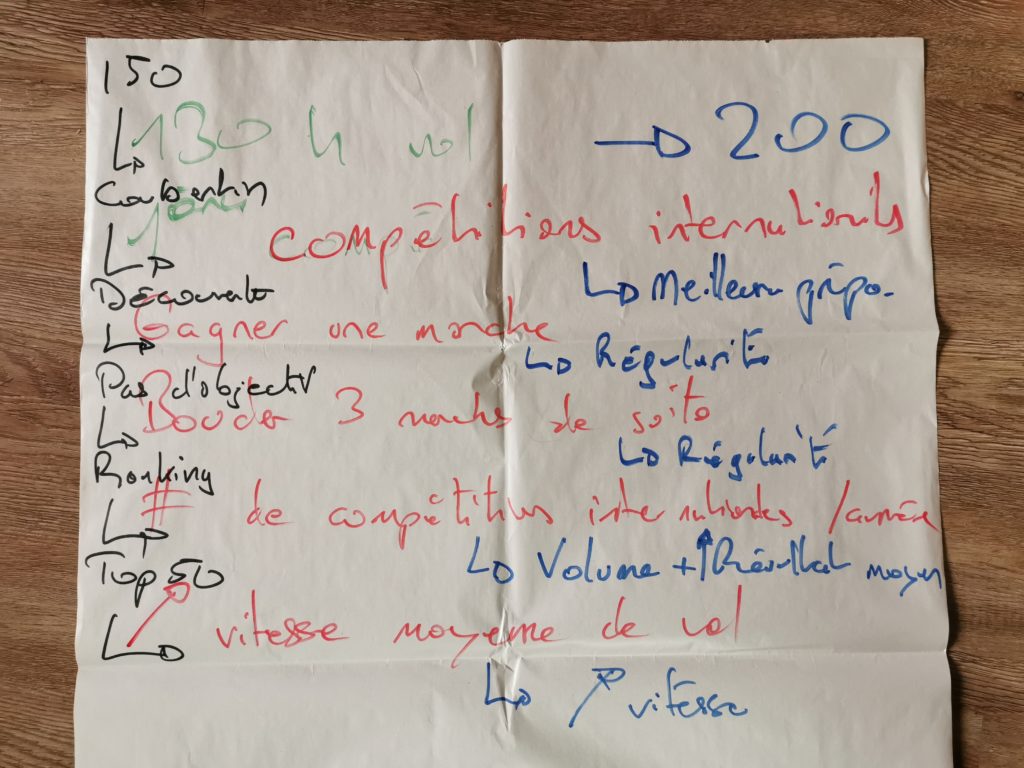 150
↳ 130 h vol → 200
Carbentin
↳ 1 compétitions internationals
↳ Meilleure prépa.
Découverte
↳ Gagner une manche
↳ Régularité
Pas d'objectif
↳ Boucler 3 manches de suite
↳ Régularité
Ranking
↳ # de compétitions internationales /année
↳ Volume + ↑ Résultat moyen
Top 50
↳ ↗ vitesse moyenne de vol
↳ ↗ vitesse